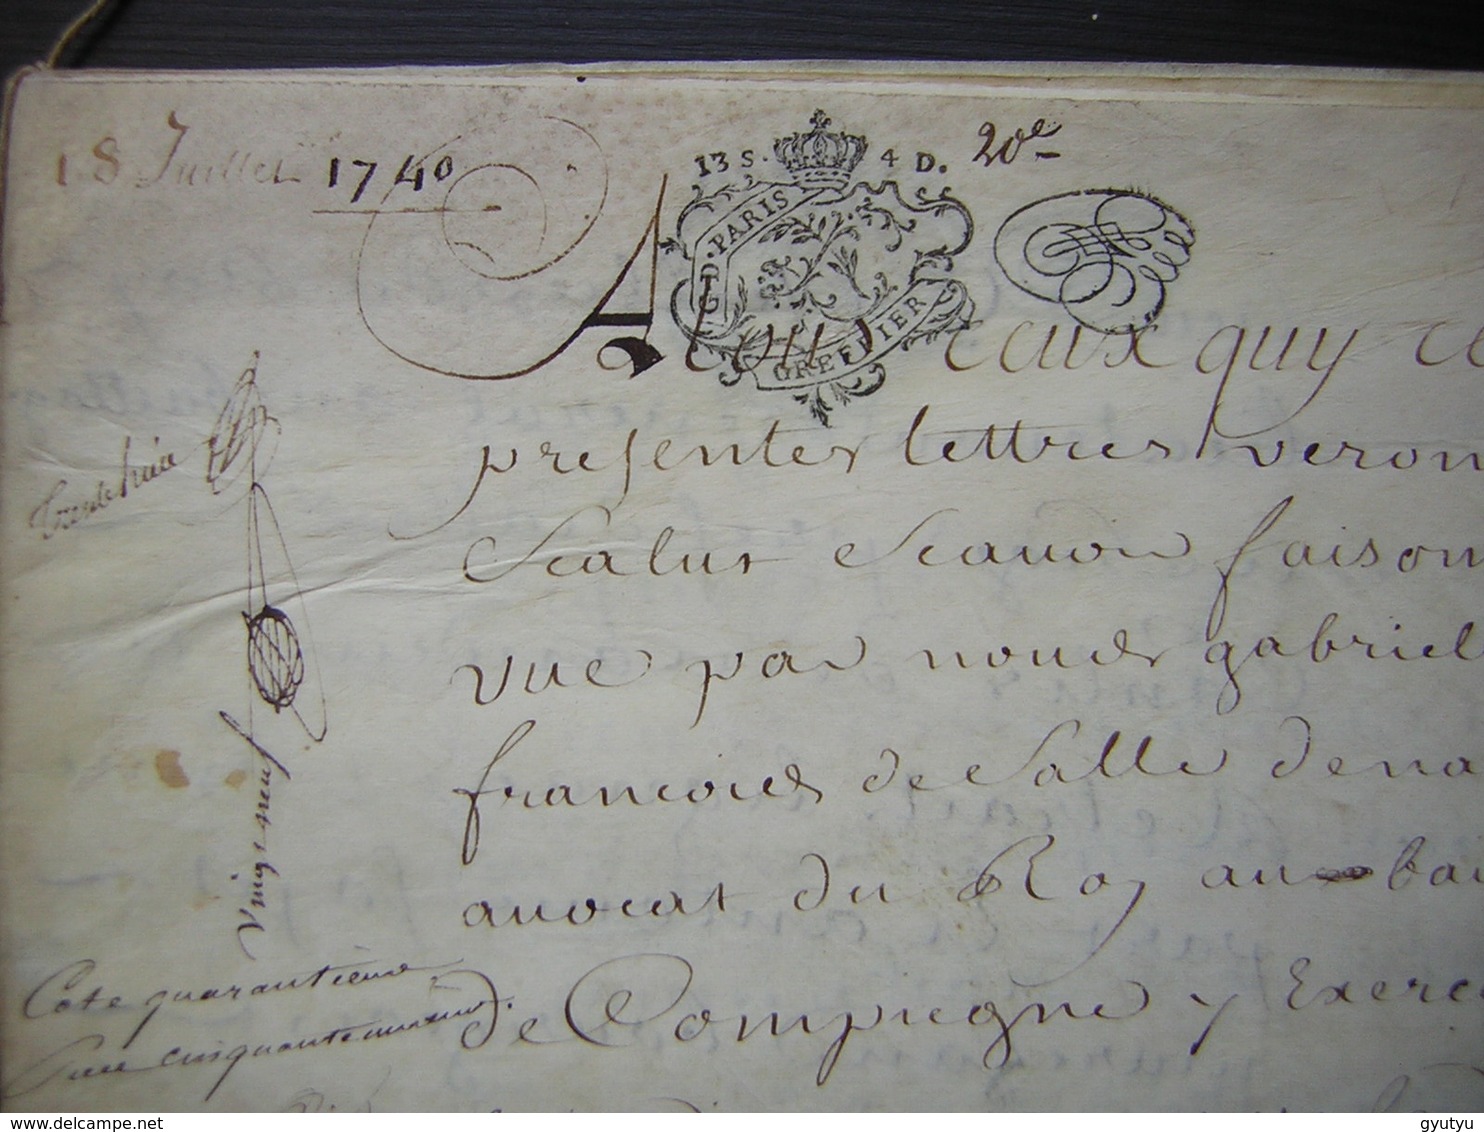 18 Juillet 1740
13 S. 4 D. 20e
GD. PARIS
GREFFIER
A tous ceux quy ce
presentes lettres veron
Salut Scavoir faison
vue par nous gabriel
francois de Salle dena
avocat du Roy au bai
de Compiegne y Exerc
trente huit
vingt neuf
Cote quarantième
cinquante
delcampe.net
gyutyu